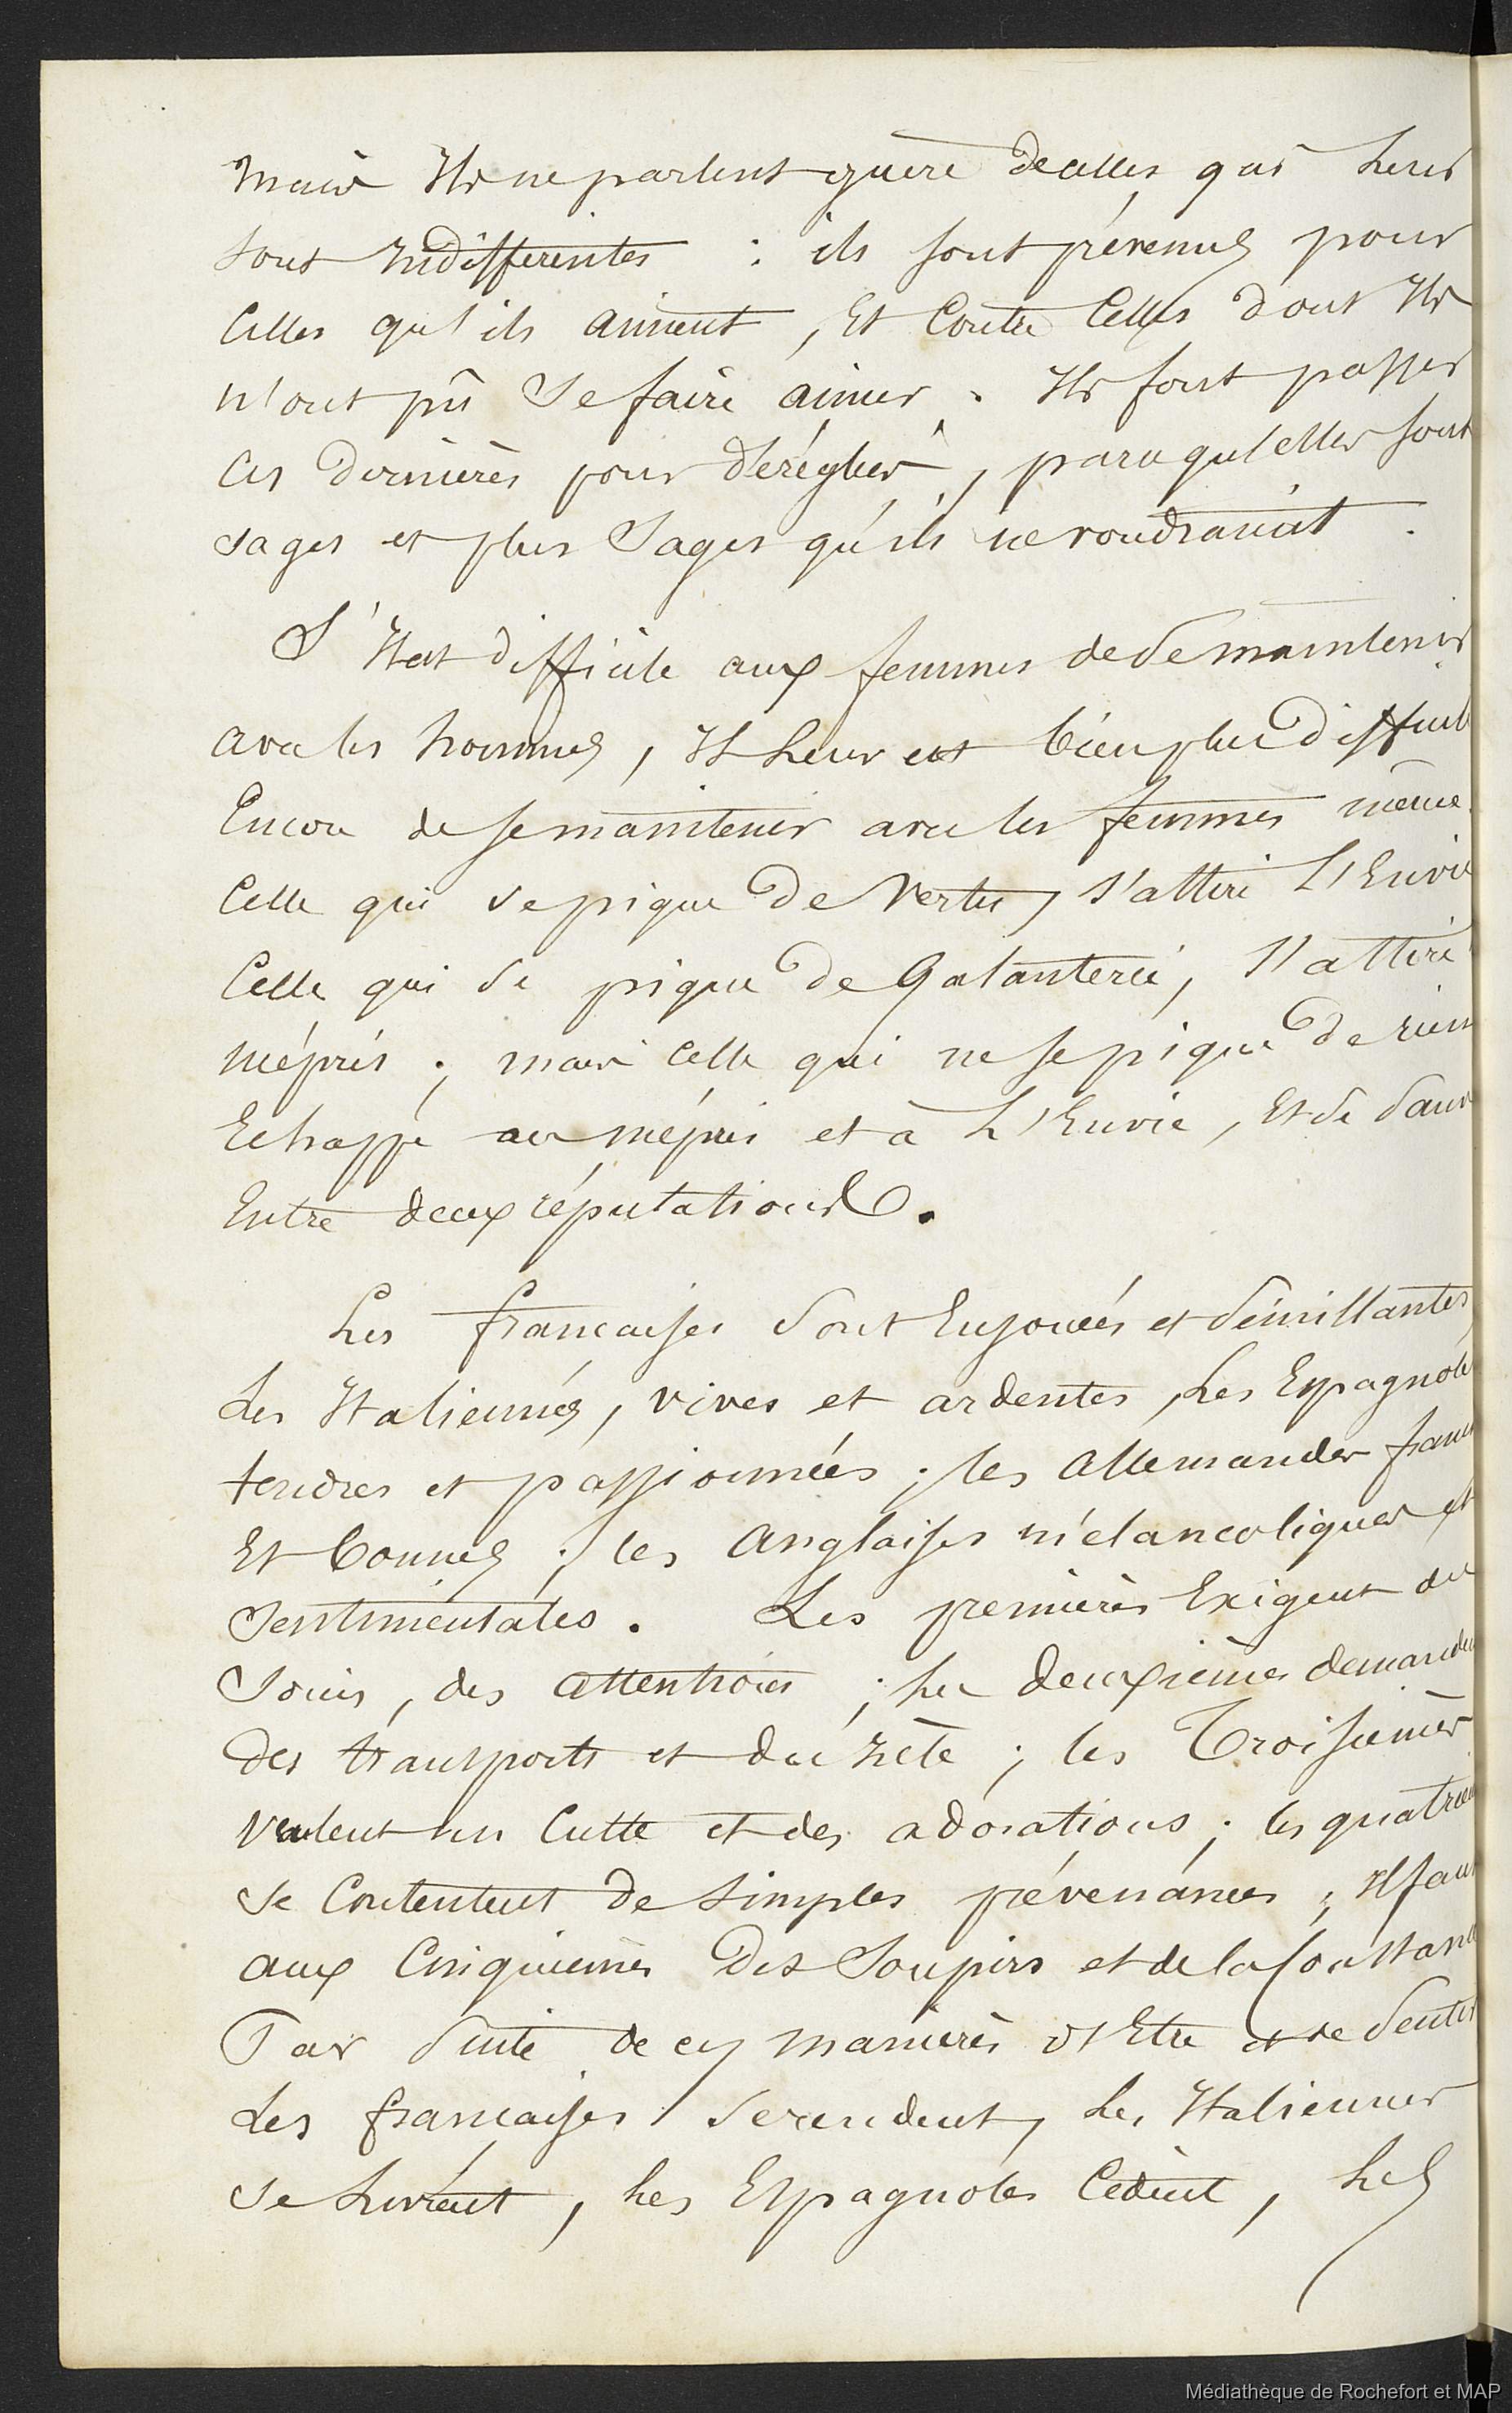 mais Ils ne parlent guère de celles qui Leur
sont Indifferentes : ils sont prévenus pour
Celles qu'ils aiment, Et Contre Celles dont Ils
n'ont pû Se faire aimer. Ils font passer
Ces dernières pour déréglées, parce qu'elles sont
sages et plus Sages qu'ils ne voudraient.
S'Il est difficile aux femmes de se maintenir
avec les hommes, Il Leur est bien plus diffucile
Encore de se maintenir avec les femmes même.
Celle qui se pique de Vertu, s'attire L'Envie
Celle qui se pique de Galanterie, s'attire
mépris ; mais Celle qui ne se pique de rien
Echappe au mépris et à L'Envie, Et se sauve
Entre deux réputations.
Les françaises sont Enjouées et sémillantes,
Les Italiennes, vives et ardentes, Les Espagnoles
tendres et passionnées ; les allemandes franches
Et bonnes ; les Anglaises mélancoliques et
Sentimentales. Les premières Exigent des
Soins, des attentions ; Les deuxièmes demandent
des transports et du zèle ; les Troisièmes
veulent un Culte et des adorations ; les quatrièmes
se Contentent de simples prévenances ; Il faut
aux Cinquièmes Des Soupirs et de la Constance
Par suite de ces manières d'Etre et de sentir
Les françaises se rendent, Les Italiennes
se Livrent, Les Espagnoles Cèdent, Les
Médiathèque de Rochefort et MAP